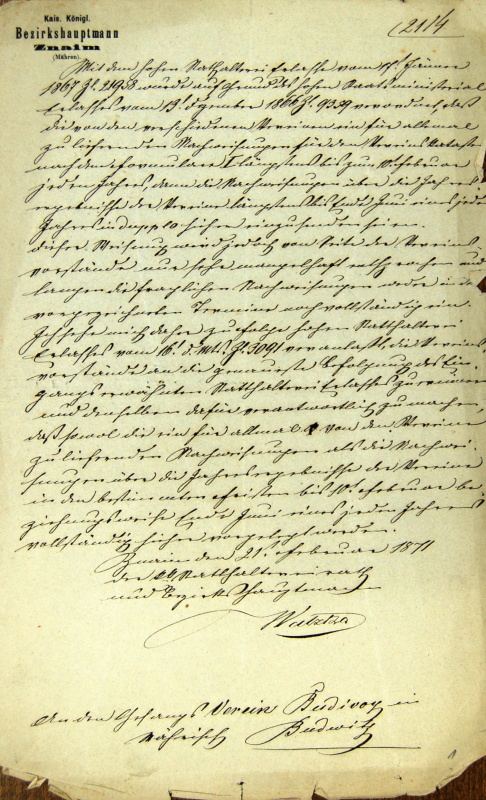 Kais. Königl.
Bezirkshauptmann
Znaim
(Mähren).
2114
Mit dem hohen Statthalterei Erlasse vom 17t. Jänner
1867 Zl. 21958 wurde auf Grund des hohen Staatsministerial
Erlasses vom 13. Dezember 1866 Zl. verordnet, daß
die von den verschiedenen Vereinen ein für allemal
zu liefernden Nachweisungen für den Vereins Kataster
nach dem Formulare I längstens bis zum 10t. Februar
jeden Jahres, dann die Nachweisungen über die Jahres
ergebnisse der Vereine längstens bis Ende Juni eines jeden
Jahres in duplo hieher einzusenden seien.
Dieser Weisung wird jedoch von Seite der Vereins-
vorstände nur sehr mangelhaft entsprochen und
langen die fraglichen Nachweisungen weder in den
vorgezeichneten Terminen noch vollständig ein.
Ich sehe mich daher zufolge hohen Statthalterei
Erlasses vom 16. d. Mts. Zl. 3091 veranlaßt, die Vereins
vorstände an die genaueste Befolgung des Ein-
gangs erwähnten Statthalterei Erlasses zu erinnern
und denselben dafür verantwortlich zu machen,
daß sowol die ein für allemal von den Vereinen
zu liefernden Nachweisungen als die Nachwei-
sungen über die Jahresergebnisse der Vereine
in den bestimmten Fristen bis 10t. Februar be-
ziehungsweise Ende Juni eines jeden Jahres
vollständig hieher vorgelegt werden.
Znaim den 21. Februar 1871
Der kk Statthaltereirath
und Bezirkshauptmann
An den Gesangs Verein Budivoy in
Mährisch Budwitz